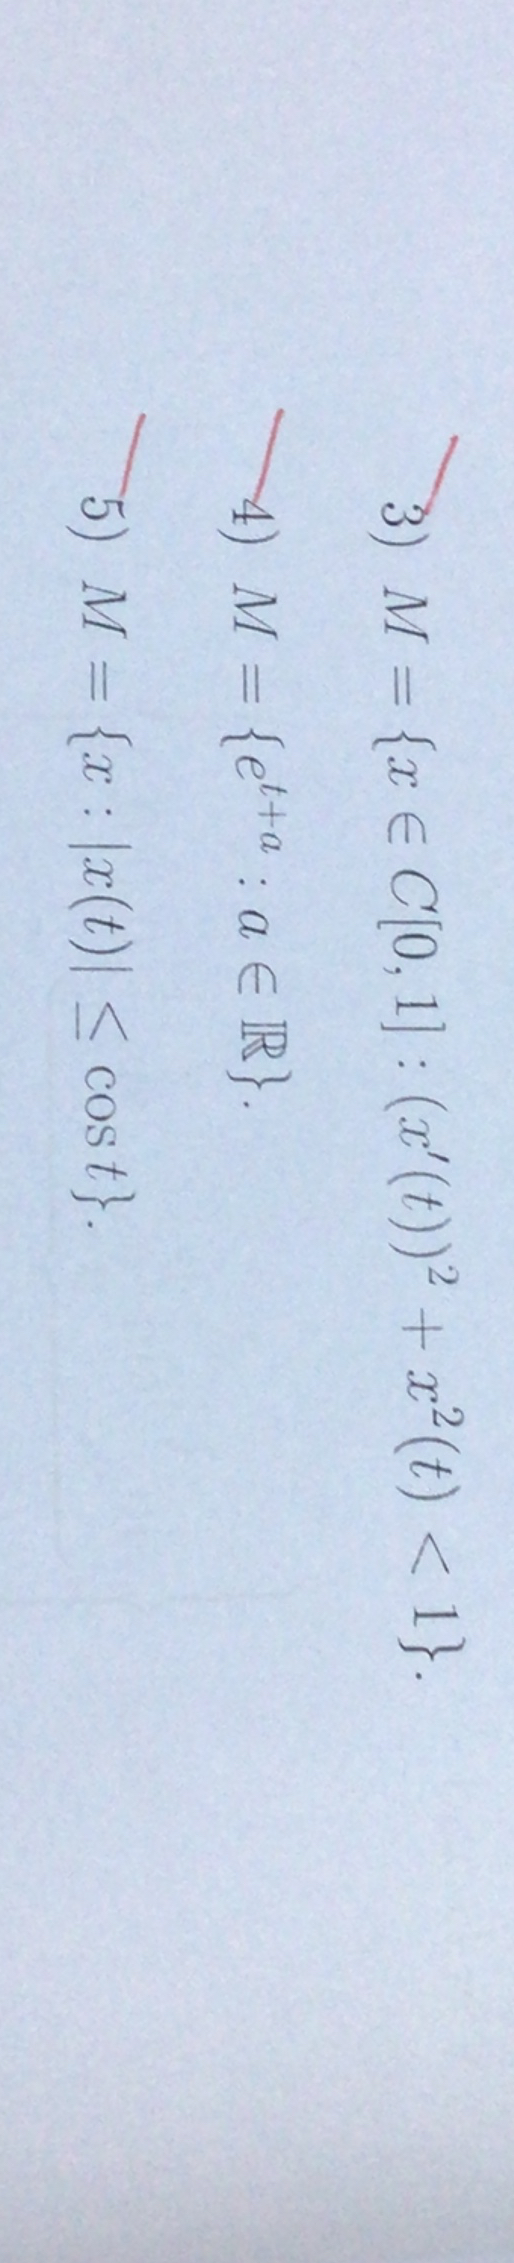 3) M = {x ∈ C[0, 1] : (x′(t))² + x²(t) < 1}.
4) M = {eᵗ⁺ᵃ : a ∈ ℝ}.
5) M = {x : |x(t)| ≤ cos t}.